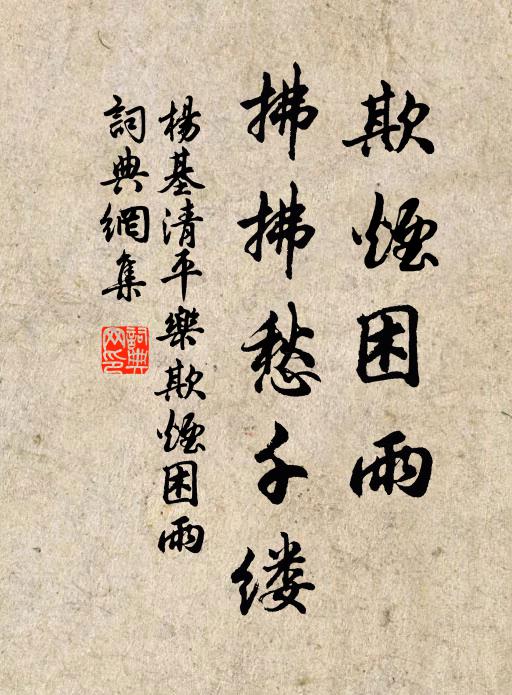 欺煙困雨
拂拂愁千缕
楊基清平樂欺煙困雨
詞典網集
詞典网印